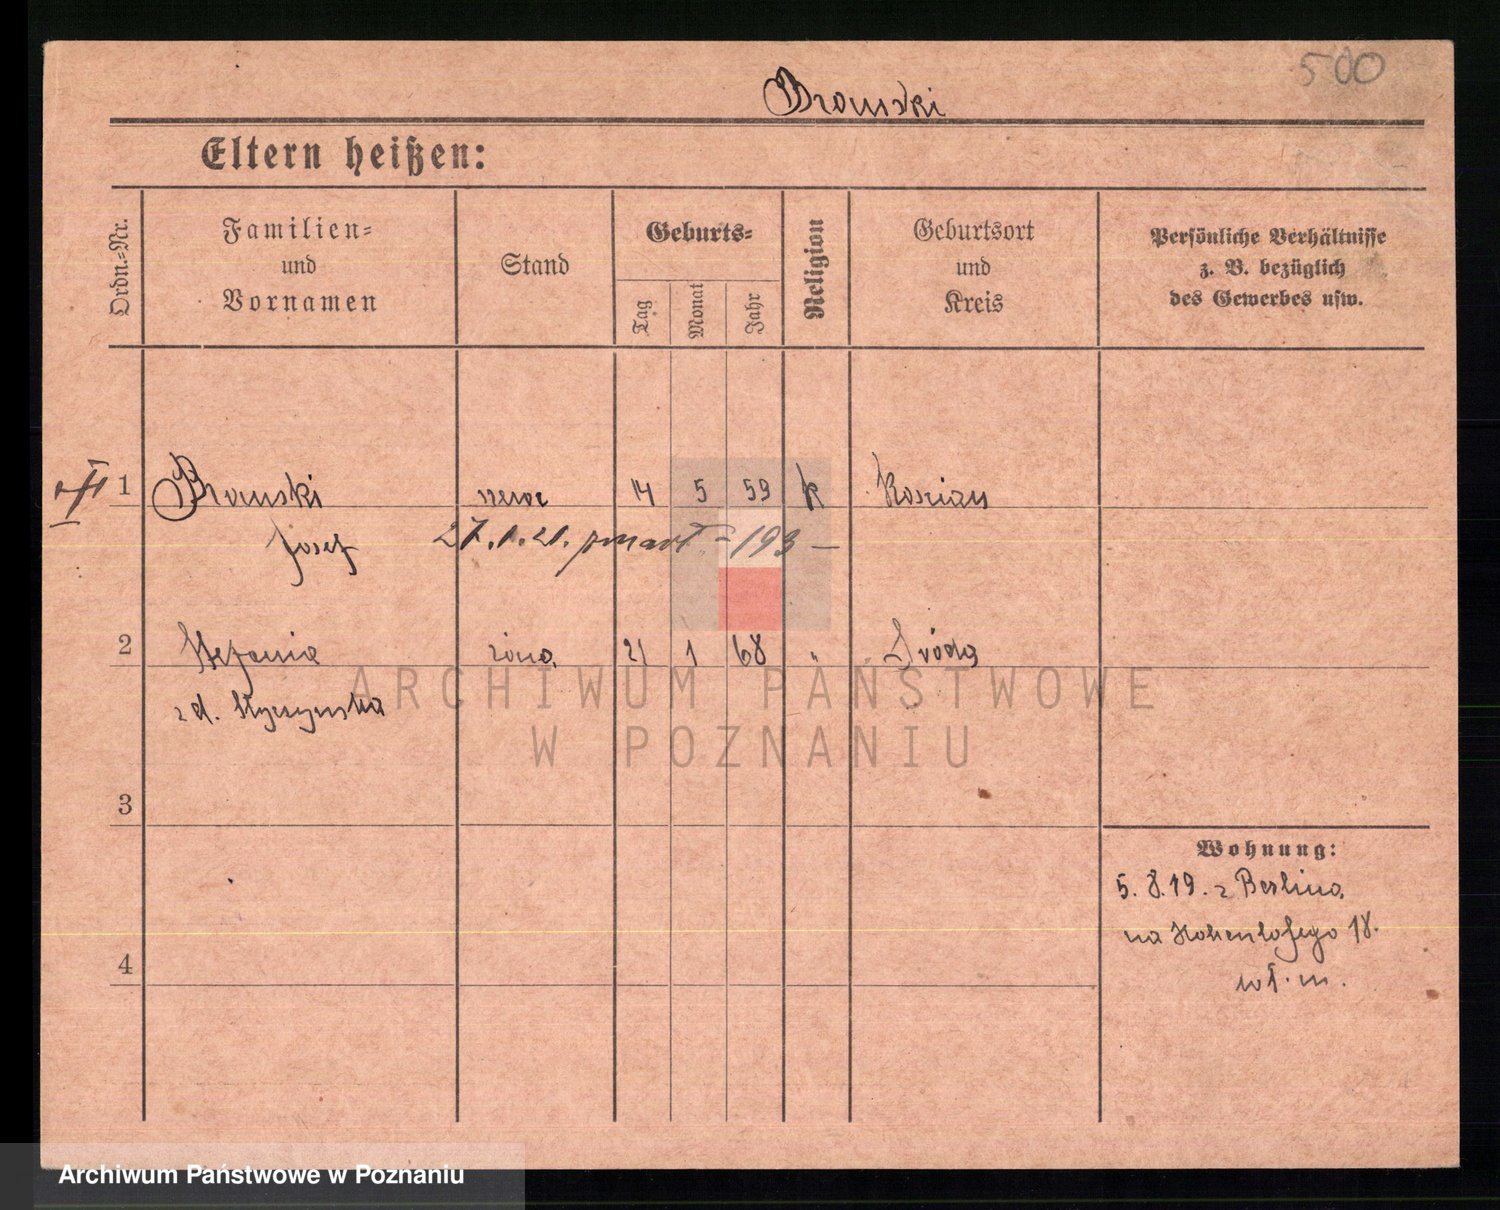 500
Bronski
Eltern heißen:
Ordn.-Nr.
Familien-
und
Vornamen
Stand
Geburts-
Tag
Monat
Jahr
Religion
Geburtsort
und
Kreis
Persönliche Verhältnisse
z. B. bezüglich
des Gewerbes usw.
1 Bronski szewc 14 5 59 k Koscian
Josef 27.1.21. zmarł - 193 -
2 Stefania żona 21 1 68 " Środa
z d. Styczynska
ARCHIWUM PAŃSTWOWE
W POZNANIU
3
Wohnung:
5. 8. 19. z Berlina
na Hohenlohego 18.
4
w T. m.
Archiwum Państwowe w Poznaniu